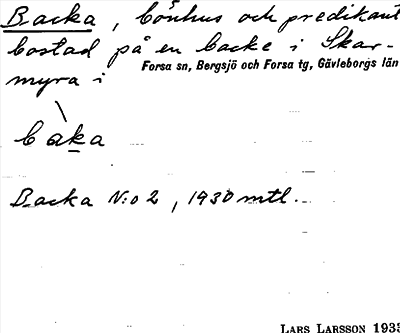 Backa, bönhus och predikant
bostad på en backe i Skar-
Forsa sn, Bergsjö och Forsa tg, Gävleborgs län
myra i
bàka
Backa N:o 2, 1930 mtl.
LARS LARSSON 1933